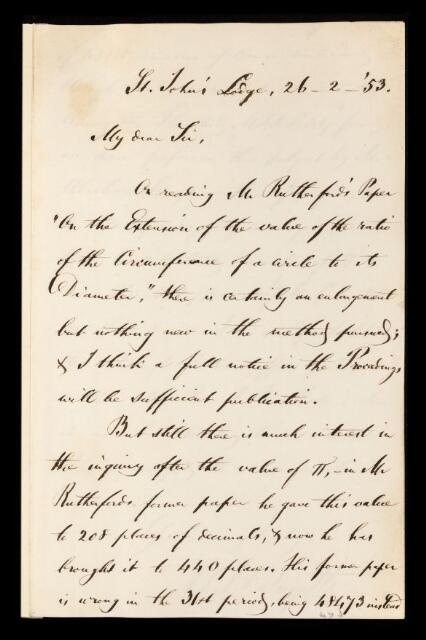 St. John's Lodge, 26 - 2 - '53.
My dear Sir,
On reading Mr Rutherford's Paper
"On the Extension of the value of the ratio
of the Circumference of a circle to its
Diameter," there is certainly an enlargement
but nothing new in the method pursued;
& I think a full notice in the Proceedings
will be sufficient publication.
But still there is much interest in
the inquiry after the value of π, - in Mr
Rutherfords former paper he gave this value
to 208 places of decimals, & now he has
brought it to 440 places. His former paper
is wrong in the 31st period, being 48473 instead